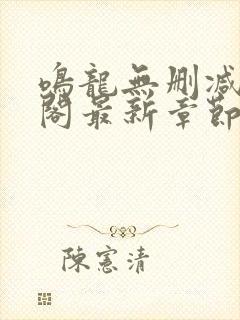 鳴龍無刪減
閣最新章節
陳憲清